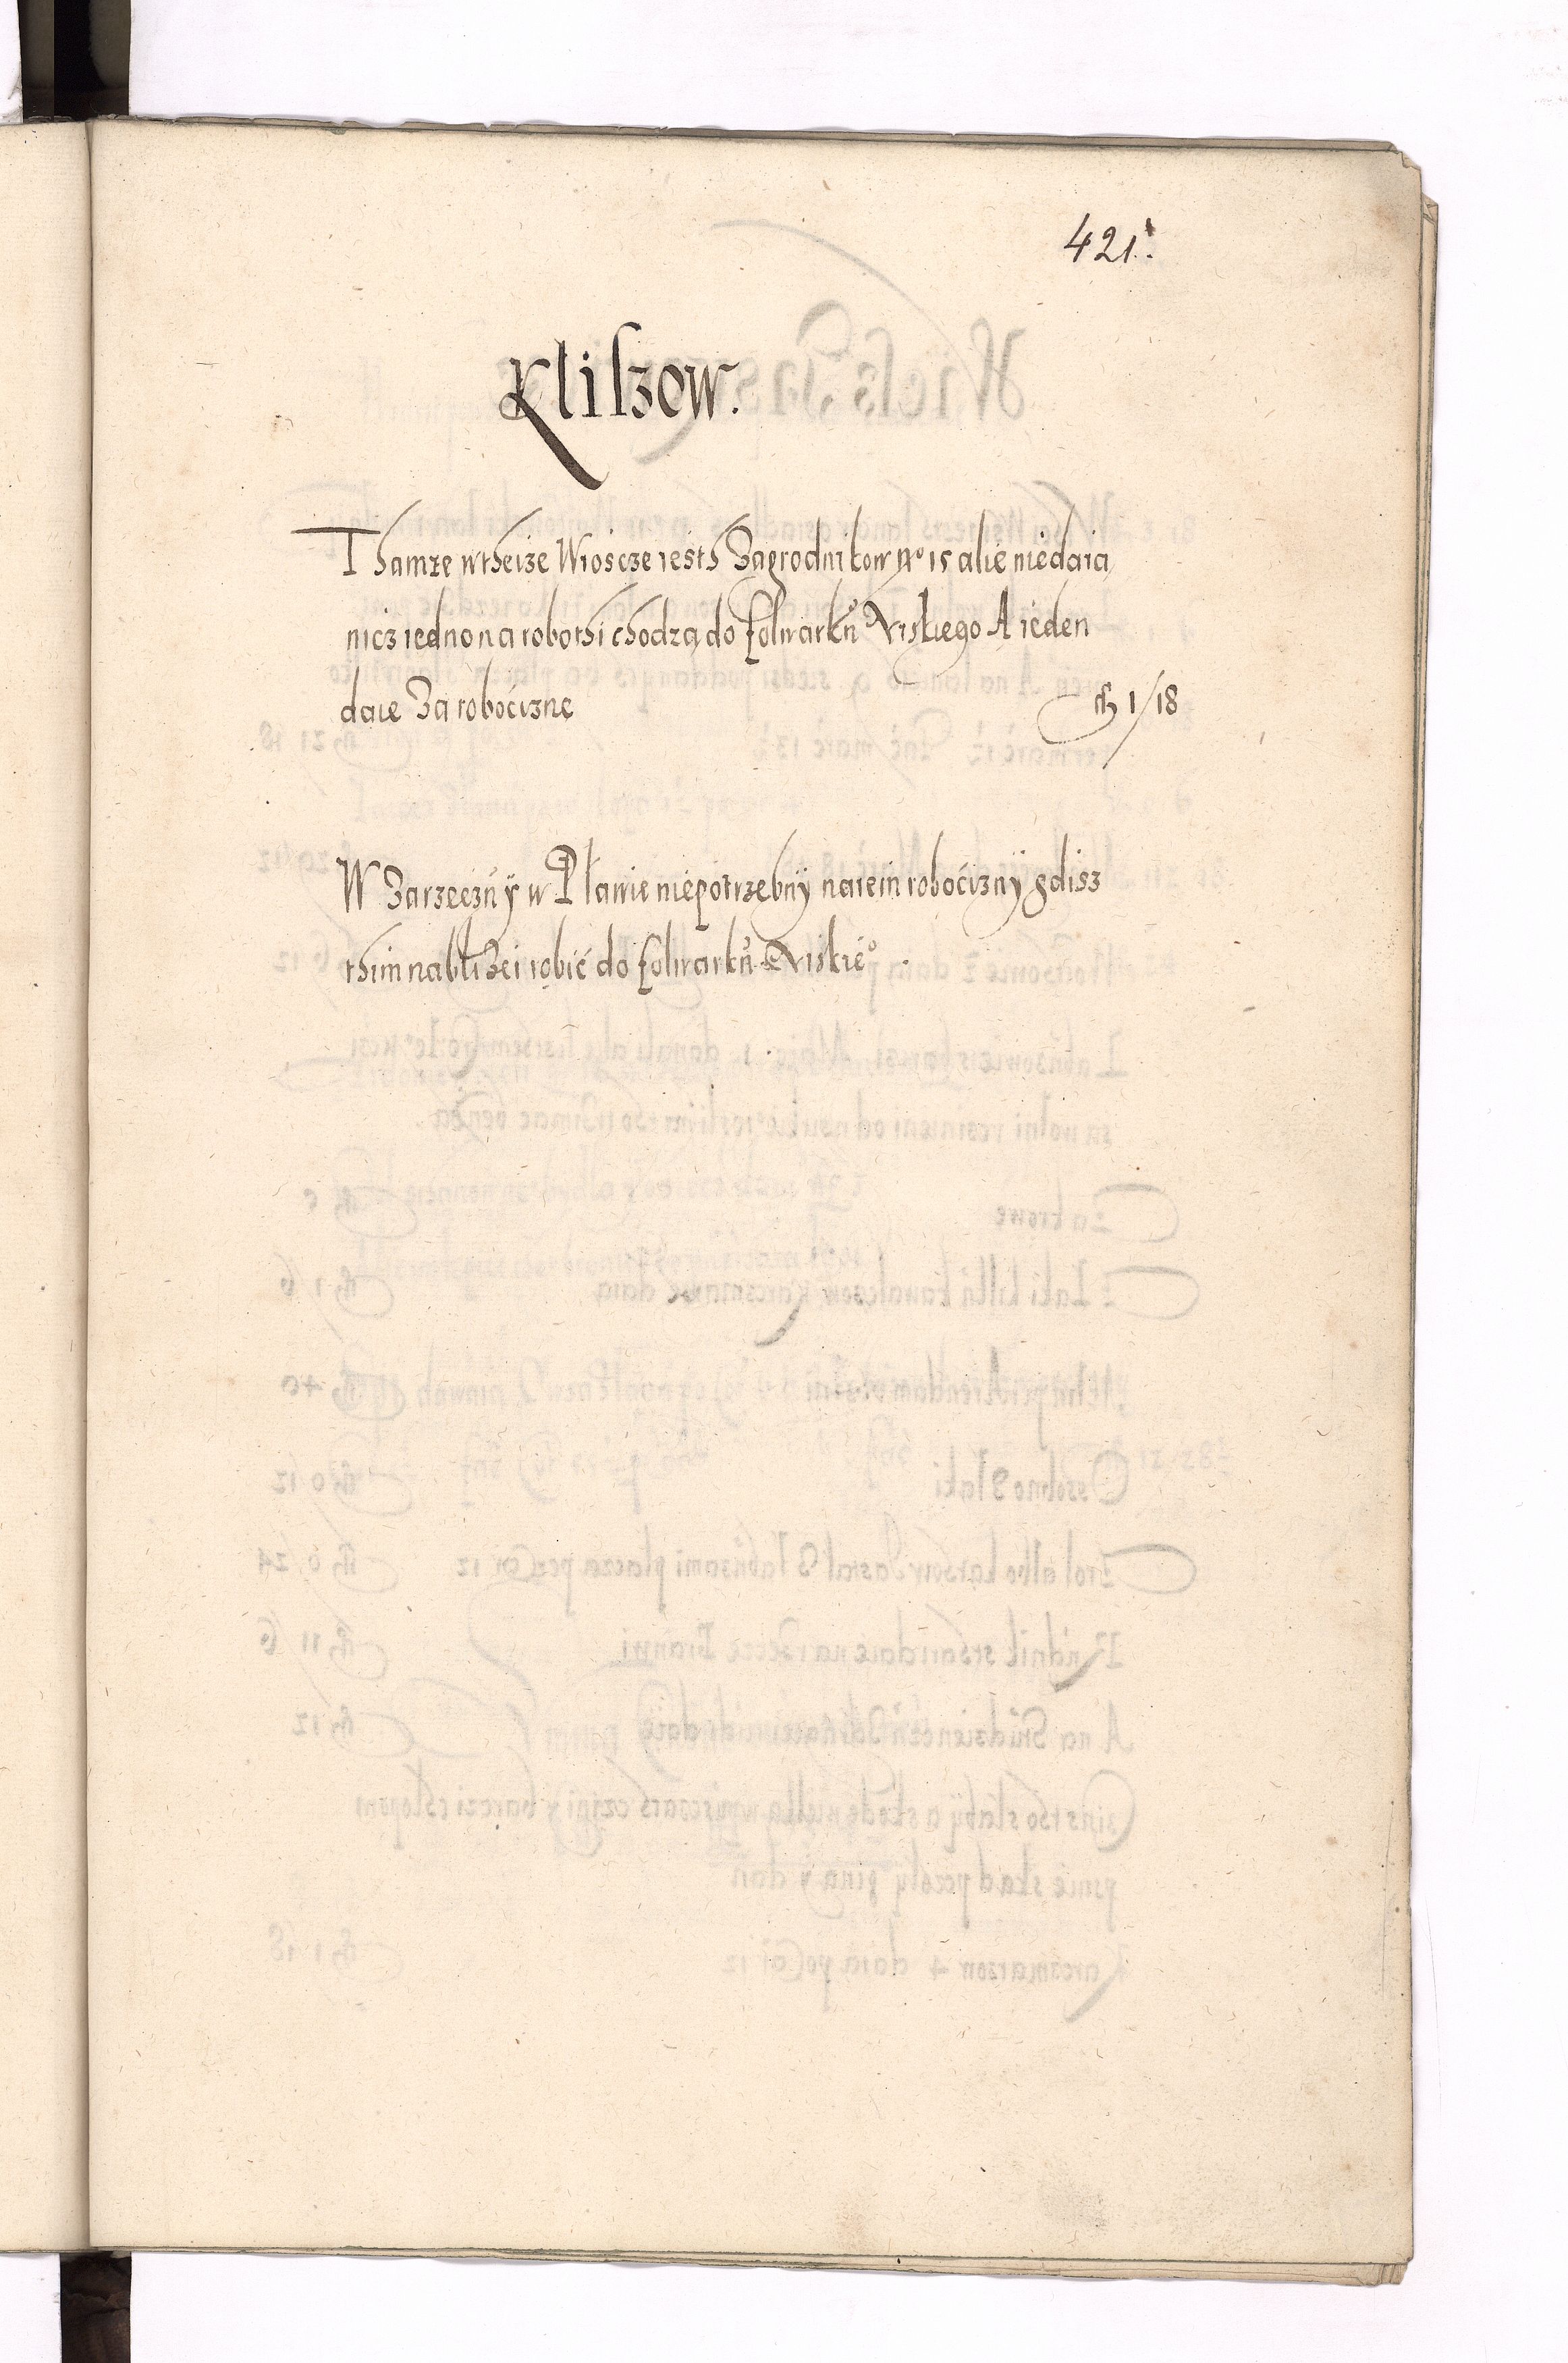 421.
Kliszow.
Thamze wtheize Wioscze iesth Zagrodnikow nro 15 alie niedaia
nicz iedno na robothi chodzą do folwarku Uiskiego A ieden
daie Za roboćiznę fl 1/18
W Zarzeczuÿ w Pławie niepotrzebnÿ na rein roboćiznÿ gdisz
thim nabliżei robić do folwarku Uiskieo